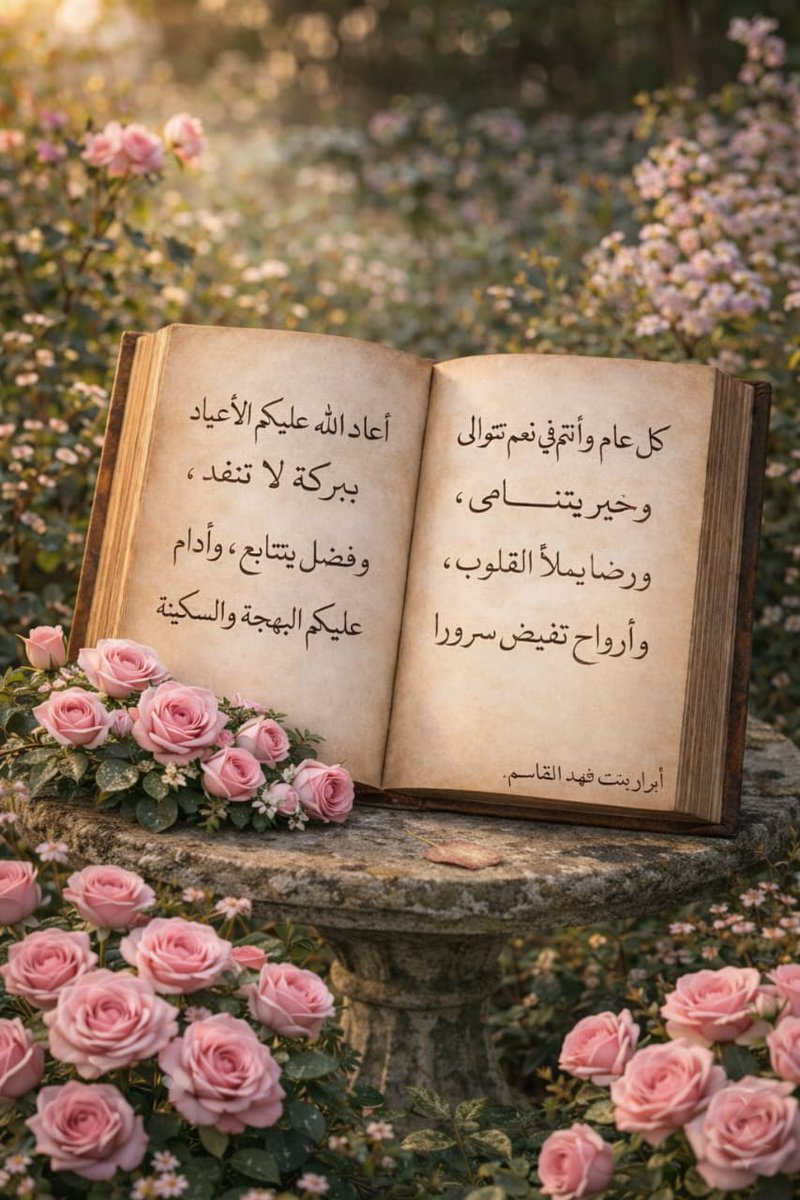 كل عام وأنتم في نعم تتوالى
وخير يتنـــامى،
ورضا يملأ القلوب،
وأرواح تفيض سرورا
أبرار بنت فهد القاسم.
أعاد الله عليكم الأعياد
ببركة لا تنفد،
وفضل يتتابع، وأدام
عليكم البهجة والسكينة